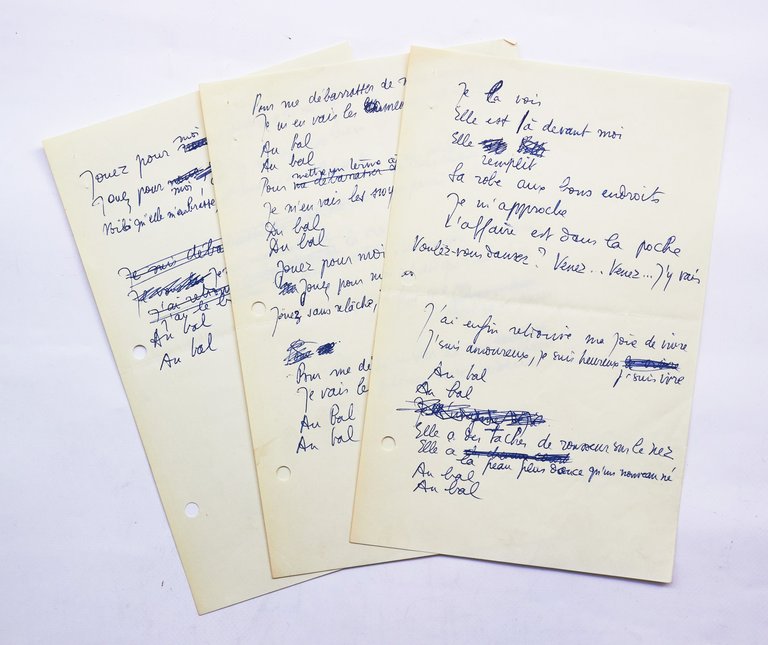 Jouez pour moi
Jouez pour moi
Voilà qu'elle m'embrasse,
Je suis
J'ai
J'ai le
Au bal
Au bal
Pour me débarrasser de
Je m'en vais les
Au bal
Au bal
mettre un terme à
Pour me débarrasser
Je m'en vais les
Au bal
Au bal
Jouez pour moi
Jouez pour m
Jouez sans relâche,
Pour me dé
Je vais le
Au Bal
Au bal
Je la vois
Elle est là devant moi
Elle
remplit
Sa robe aux bons endroits
Je m'approche
L'affaire est dans la poche
Voulez-vous danser? Venez.. Venez... J'y vais
J'ai enfin retrouvé ma joie de vivre
J'suis amoureux, je suis heureux
j'suis ivre
Au bal
Au bal
Elle a des taches de rousseur sur le nez
Elle a
la peau plus douce qu'un nouveau né
Au bal
Au bal